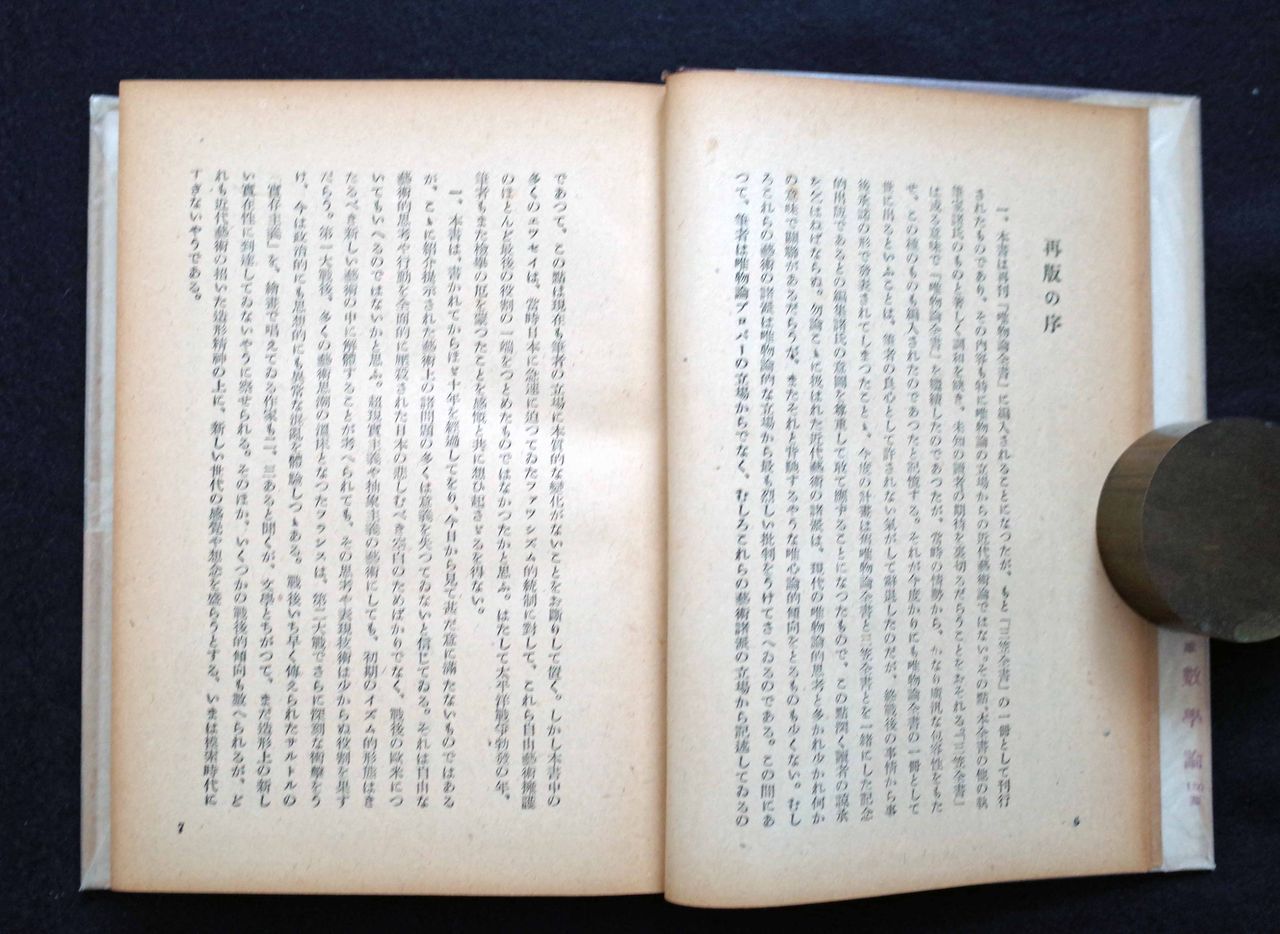 再版の序
一、本書は再刊『唯物論全書』に編入されることになつたが、もと『三笠全書』の一冊として刊行
されたものであり、その内容も特に唯物論の立場からの近代藝術論ではない。その點、本全書の他の執
筆家諸氏のものと著しく調和を缺き、未知の讀者の期待を裏切るだらうことをおそれる。『三笠全書』
は或る意味で『唯物論全書』を繼續したのであつたが、當時の情勢から、かなり廣汎な包容性をもた
せ、この種のものも編入されたのであつたと記憶する。それが今度かりにも唯物論全書の一冊として
世に出るといふことは、筆者の良心として許されない氣がして辭退したのだが、終戰後の事情から事
後承諾の形で發表されてしまつたことと、今度の計畫は舊唯物論全書と三笠全書とを一緒にした記念
的出版であるとの編集諸氏の意圖を尊重して敢て應ずることになつたもので、この點閲く讀者の諒承
を乞はねばならぬ。勿論こゝに扱はれた近代藝術の諸派は、現代の唯物論的思考と多かれ少かれ何か
の意味で關聯があるだらうが、またそれと背馳するやうな唯心論的傾向をとるものも少くない。むし
ろこれらの藝術の諸派は唯物論的な立場から最も烈しい批判をうけてさへゐるのである。この間にあ
つて、筆者は唯物論プロパーの立場からでなく、むしろこれらの藝術諸派の立場から記述してゐるの
6
であつて、この點は現在も筆者の立場に本質的な變化がないことをお斷りして置く。しかし本書中の
多くのエツセイは、當時日本に急速に迫つてゐたファツシズム的統制に對して、これら自由藝術擁護
のほとんど最後の役割の一端をつとめたものではなかつたかと思ふ。はたして太平洋戰爭勃發の年、
筆者もまた檢擧の厄を蒙つたことを感慨と共に想ひ起さゞるを得ない。
一、本書は、書かれてからほゞ十年を經過してをり、今日から見て甚だ意に滿たないものではある
が、こゝに紹介提示された藝術上の諸問題の多くは意義を失つてゐないと信じてゐる。それは自由な
藝術的思考や行動を全面的に壓殺された日本の悲しむべき空白のためばかりでなく、戰後の歐米につ
いてもいへるのではないかと思ふ。超現實主義や抽象主義の藝術にしても、初期のイズム的形態はき
たるべき新しい藝術の中に解體することが考へられても、その思考や表現技術は少からぬ役割を果す
だらう。第一大戰後、多くの藝術思潮の溫床となつたフランスは、第二大戰でさらに深刻な衝擊をう
け、今は政治的にも思想的にも異常な混亂を體驗しつゝある。戰後いち早く傳えられたサルトルの
「實存主義」を、繪畫で唱えてゐる作家も二、三あると聞くが、文學とちがつて、まだ造形上の新し
い實在性に到達してゐないやうに察せられる。そのほか、いくつかの戰後的傾向も數へられるが、ど
れも近代藝術の招いた造形精神の上に、新しい世代の感覺や想念を盛らうとする、いまは模索時代に
すぎないやうである。
7
數學論